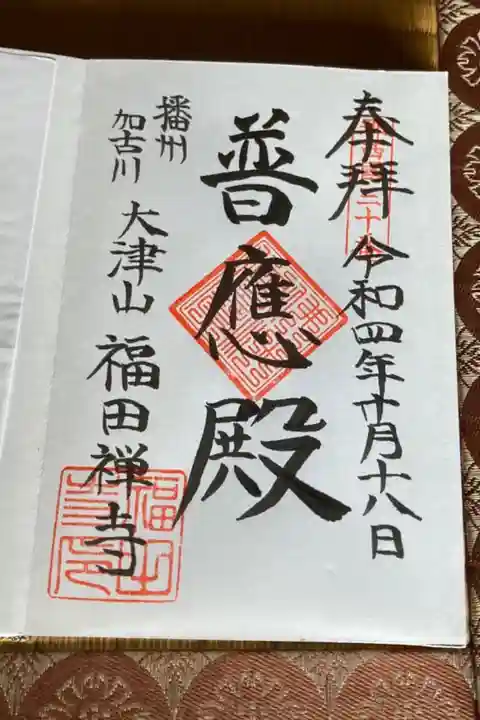 奉拝 令和四年十月十八日
普應殿
播州
加古川 大津山 福田禅寺